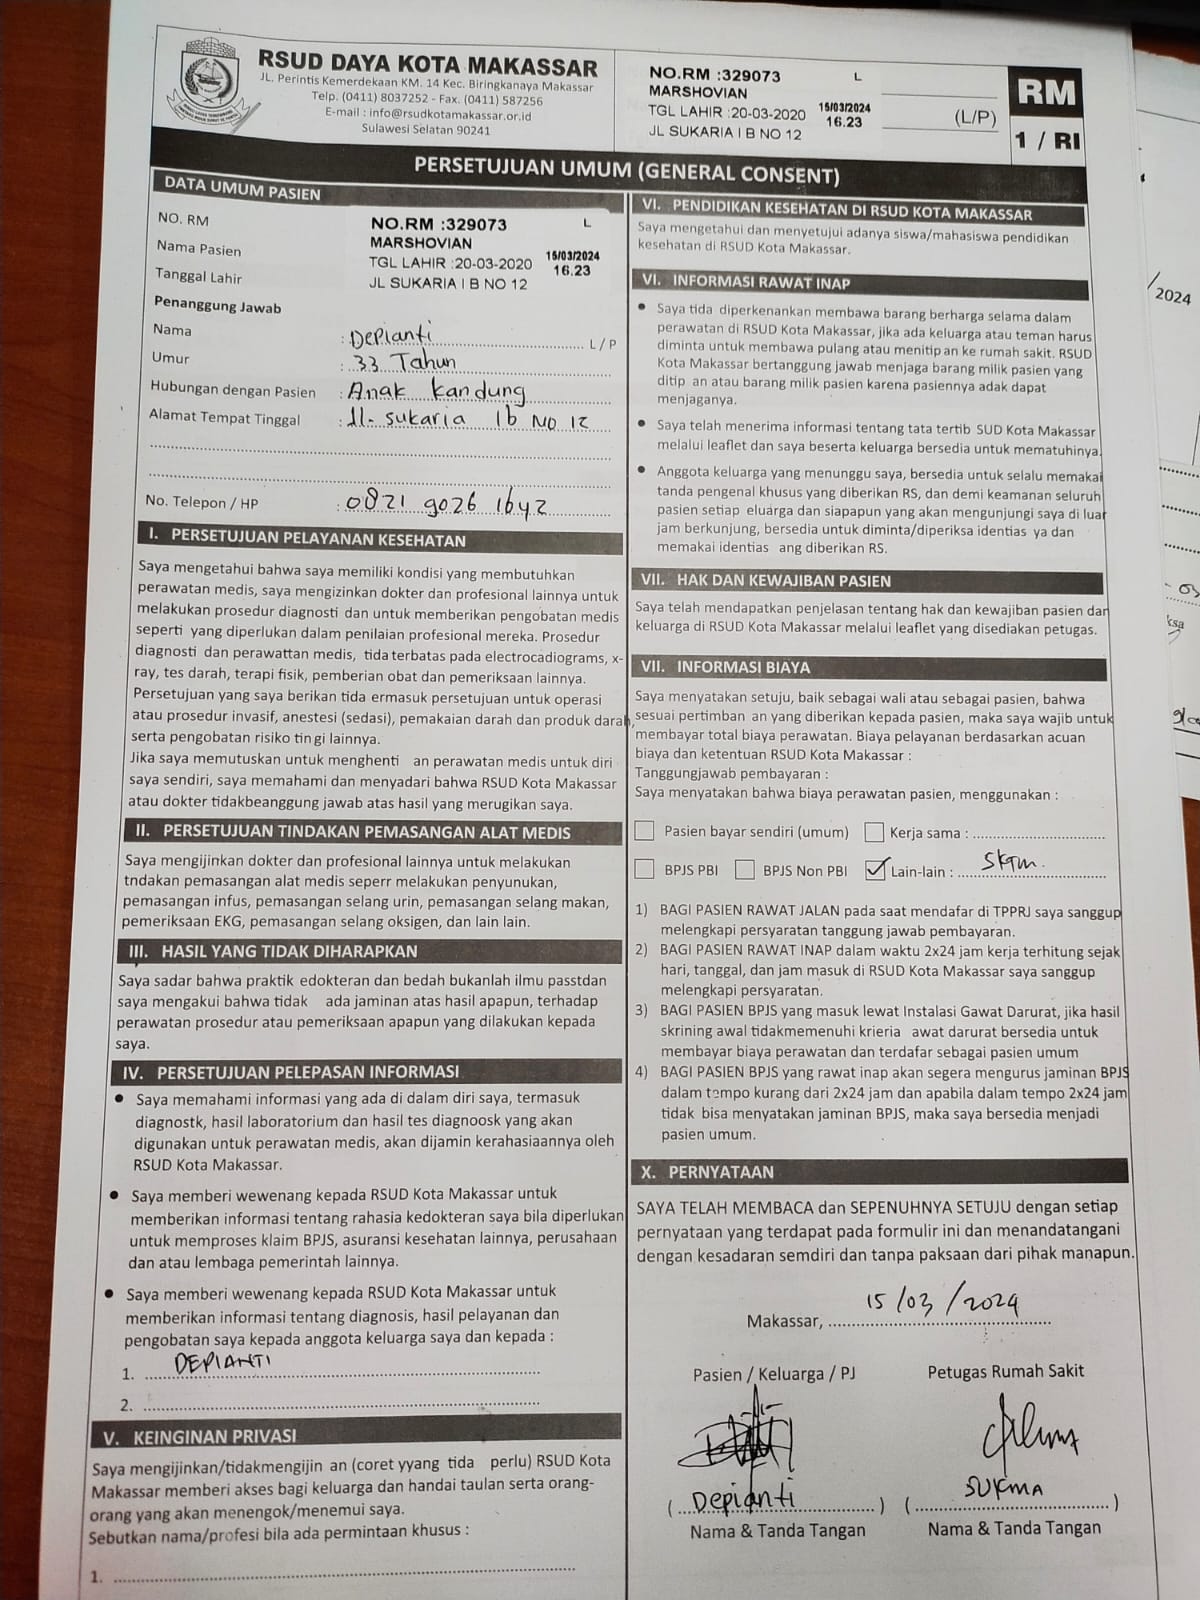 RSUD DAYA KOTA MAKASSAR
JL. Perintis Kemerdekaan KM. 14 Kec. Biringkanaya Makassar
Telp. (0411) 8037252 - Fax. (0411) 587256
E-mail : info@rsudkotamakassar.or.id
Sulawesi Selatan 90241
NO.RM :329073 L
MARSHOVIAN
TGL LAHIR :20-03-2020 15/03/2024
JL SUKARIA I B NO 12 16.23
(L/P)
RM
1 / RI
PERSETUJUAN UMUM (GENERAL CONSENT)
DATA UMUM PASIEN
NO. RM
Nama Pasien
Tanggal Lahir
NO.RM :329073 L
MARSHOVIAN
TGL LAHIR :20-03-2020 15/03/2024
JL SUKARIA I B NO 12 16.23
Penanggung Jawab
Nama : Depianti L / P
Umur : 33 Tahun
Hubungan dengan Pasien : Anak kandung
Alamat Tempat Tinggal : Jl. sukaria 1b No 12
No. Telepon / HP : 0821 9026 1642
I. PERSETUJUAN PELAYANAN KESEHATAN
Saya mengetahui bahwa saya memiliki kondisi yang membutuhkan
perawatan medis, saya mengizinkan dokter dan profesional lainnya untuk
melakukan prosedur diagnosti dan untuk memberikan pengobatan medis
seperti yang diperlukan dalam penilaian profesional mereka. Prosedur
diagnosti dan perawattan medis, tida terbatas pada electrocadiograms, x-
ray, tes darah, terapi fisik, pemberian obat dan pemeriksaan lainnya.
Persetujuan yang saya berikan tida ermasuk persetujuan untuk operasi
atau prosedur invasif, anestesi (sedasi), pemakaian darah dan produk darah,
serta pengobatan risiko tin gi lainnya.
Jika saya memutuskan untuk menghenti an perawatan medis untuk diri
saya sendiri, saya memahami dan menyadari bahwa RSUD Kota Makassar
atau dokter tidakbeanggung jawab atas hasil yang merugikan saya.
II. PERSETUJUAN TINDAKAN PEMASANGAN ALAT MEDIS
Saya mengijinkan dokter dan profesional lainnya untuk melakukan
tndakan pemasangan alat medis seperr melakukan penyunukan,
pemasangan infus, pemasangan selang urin, pemasangan selang makan,
pemeriksaan EKG, pemasangan selang oksigen, dan lain lain.
III. HASIL YANG TIDAK DIHARAPKAN
Saya sadar bahwa praktik edokteran dan bedah bukanlah ilmu passtdan
saya mengakui bahwa tidak ada jaminan atas hasil apapun, terhadap
perawatan prosedur atau pemeriksaan apapun yang dilakukan kepada
saya.
IV. PERSETUJUAN PELEPASAN INFORMASI
• Saya memahami informasi yang ada di dalam diri saya, termasuk
diagnostk, hasil laboratorium dan hasil tes diagnoosk yang akan
digunakan untuk perawatan medis, akan dijamin kerahasiaannya oleh
RSUD Kota Makassar.
• Saya memberi wewenang kepada RSUD Kota Makassar untuk
memberikan informasi tentang rahasia kedokteran saya bila diperlukan
untuk memproses klaim BPJS, asuransi kesehatan lainnya, perusahaan
dan atau lembaga pemerintah lainnya.
• Saya memberi wewenang kepada RSUD Kota Makassar untuk
memberikan informasi tentang diagnosis, hasil pelayanan dan
pengobatan saya kepada anggota keluarga saya dan kepada :
1. DEPIANTI
2.
V. KEINGINAN PRIVASI
Saya mengijinkan/tidakmengijin an (coret yyang tida perlu) RSUD Kota
Makassar memberi akses bagi keluarga dan handai taulan serta orang-
orang yang akan menengok/menemui saya.
Sebutkan nama/profesi bila ada permintaan khusus :
1.
VI. PENDIDIKAN KESEHATAN DI RSUD KOTA MAKASSAR
Saya mengetahui dan menyetujui adanya siswa/mahasiswa pendidikan
kesehatan di RSUD Kota Makassar.
VI. INFORMASI RAWAT INAP
• Saya tida diperkenankan membawa barang berharga selama dalam
perawatan di RSUD Kota Makassar, jika ada keluarga atau teman harus
diminta untuk membawa pulang atau menitip an ke rumah sakit. RSUD
Kota Makassar bertanggung jawab menjaga barang milik pasien yang
ditip an atau barang milik pasien karena pasiennya adak dapat
menjaganya.
• Saya telah menerima informasi tentang tata tertib SUD Kota Makassar
melalui leaflet dan saya beserta keluarga bersedia untuk mematuhinya.
• Anggota keluarga yang menunggu saya, bersedia untuk selalu memakai
tanda pengenal khusus yang diberikan RS, dan demi keamanan seluruh
pasien setiap eluarga dan siapapun yang akan mengunjungi saya di luar
jam berkunjung, bersedia untuk diminta/diperiksa identias ya dan
memakai identias ang diberikan RS.
VII. HAK DAN KEWAJIBAN PASIEN
Saya telah mendapatkan penjelasan tentang hak dan kewajiban pasien dan
keluarga di RSUD Kota Makassar melalui leaflet yang disediakan petugas.
VII. INFORMASI BIAYA
Saya menyatakan setuju, baik sebagai wali atau sebagai pasien, bahwa
sesuai pertimban an yang diberikan kepada pasien, maka saya wajib untuk
membayar total biaya perawatan. Biaya pelayanan berdasarkan acuan
biaya dan ketentuan RSUD Kota Makassar :
Tanggungjawab pembayaran :
Saya menyatakan bahwa biaya perawatan pasien, menggunakan :
Pasien bayar sendiri (umum) Kerja sama :
BPJS PBI BPJS Non PBI Lain-lain : SKTM.
1) BAGI PASIEN RAWAT JALAN pada saat mendafar di TPPRJ saya sanggup
melengkapi persyaratan tanggung jawab pembayaran.
2) BAGI PASIEN RAWAT INAP dalam waktu 2x24 jam kerja terhitung sejak
hari, tanggal, dan jam masuk di RSUD Kota Makassar saya sanggup
melengkapi persyaratan.
3) BAGI PASIEN BPJS yang masuk lewat Instalasi Gawat Darurat, jika hasil
skrining awal tidakmemenuhi krieria awat darurat bersedia untuk
membayar biaya perawatan dan terdafar sebagai pasien umum
4) BAGI PASIEN BPJS yang rawat inap akan segera mengurus jaminan BPJS
dalam tempo kurang dari 2x24 jam dan apabila dalam tempo 2x24 jam
tidak bisa menyatakan jaminan BPJS, maka saya bersedia menjadi
pasien umum.
X. PERNYATAAN
SAYA TELAH MEMBACA dan SEPENUHNYA SETUJU dengan setiap
pernyataan yang terdapat pada formulir ini dan menandatangani
dengan kesadaran semdiri dan tanpa paksaan dari pihak manapun.
Makassar, 15/03/2024
Pasien / Keluarga / PJ Petugas Rumah Sakit
( Depianti ) ( SUKMA )
Nama & Tanda Tangan Nama & Tanda Tangan
/ 2024